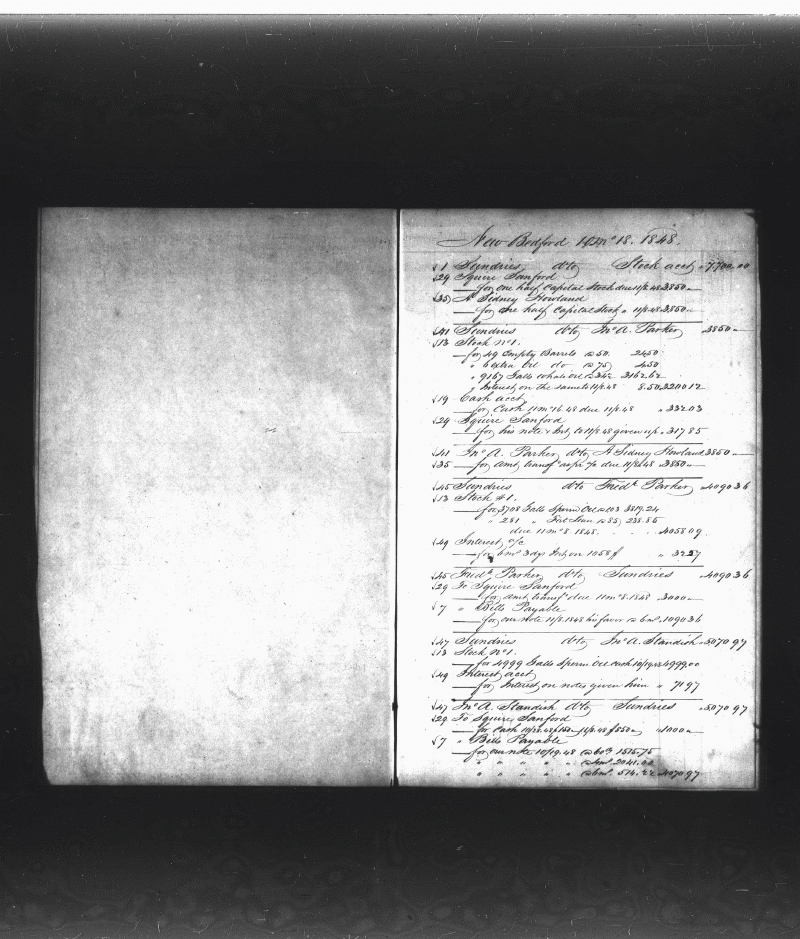 New Bedford 10 Mo 18. 1848.
√1 Sundries dto Stock acct 7700.00
√29 Squire Sanford
for one half Capital Stock due 11/8.48 3850
√35 A Sidney Howland
for one half Capital Stock " 11/8.48 3850
√41 Sundries dto Jno A. Parker 3850
√13 Stock No 1.
for 49 Empty Barrels @ 50. 24.50
" 6 extra Oil do @ 75 4.50
" 9167 Galls whale oil @ 34½ 3162.62
" Interest on the same to 11/8.48 8.50 3200 12
√19 Cash acct
for Cash 11 mo 16. 48 due 11/8.48 " 332 03
√29 Squire Sanford
for his note & Int to 11/8.48 given " 317 85
√41 Jno A. Parker dto A Sidney Howland 3850
√35 for amt transf as pr a/c due 11/8.48 3850
√45 Sundries dto Fredk Parker 4090 36
√13 Stock #1.
for 3708 Galls Sperm Oil @ 103 3819.24
" 281 " @ 85 238.85
due 11 mo 8. 1848. 4058 09
√49 Interest a/c
for 6 mo 3 dys Int on 1058 " 32 27
√45 Fredk Parker dto Sundries 4090 36
√29 To Squire Sanford
for amt transf due 11 mo 8. 1848 3000
√7 " Bills Payable
for our note 11/8.1848 his favor @ 6 mo. 1090 36
√47 Sundries dto Jno A. Standish 5070 97
√13 Stock No 1.
for 4999 Galls Sperm Oil cash 10/19.48 4999 00
√49 Interest acct
for Interest on notes given him " 71 97
√47 Jno A. Standish dto Sundries 5070 97
√29 To Squire Sanford
for Cash 10/18.48 $150 11/2.48 $850 " 1000
√7 " Bills Payable
for our note 10/19.48 1515.75
" " " " " @ 4 mo. 2041.00
" " " " " @ 6 mo. 514.22 4070 97